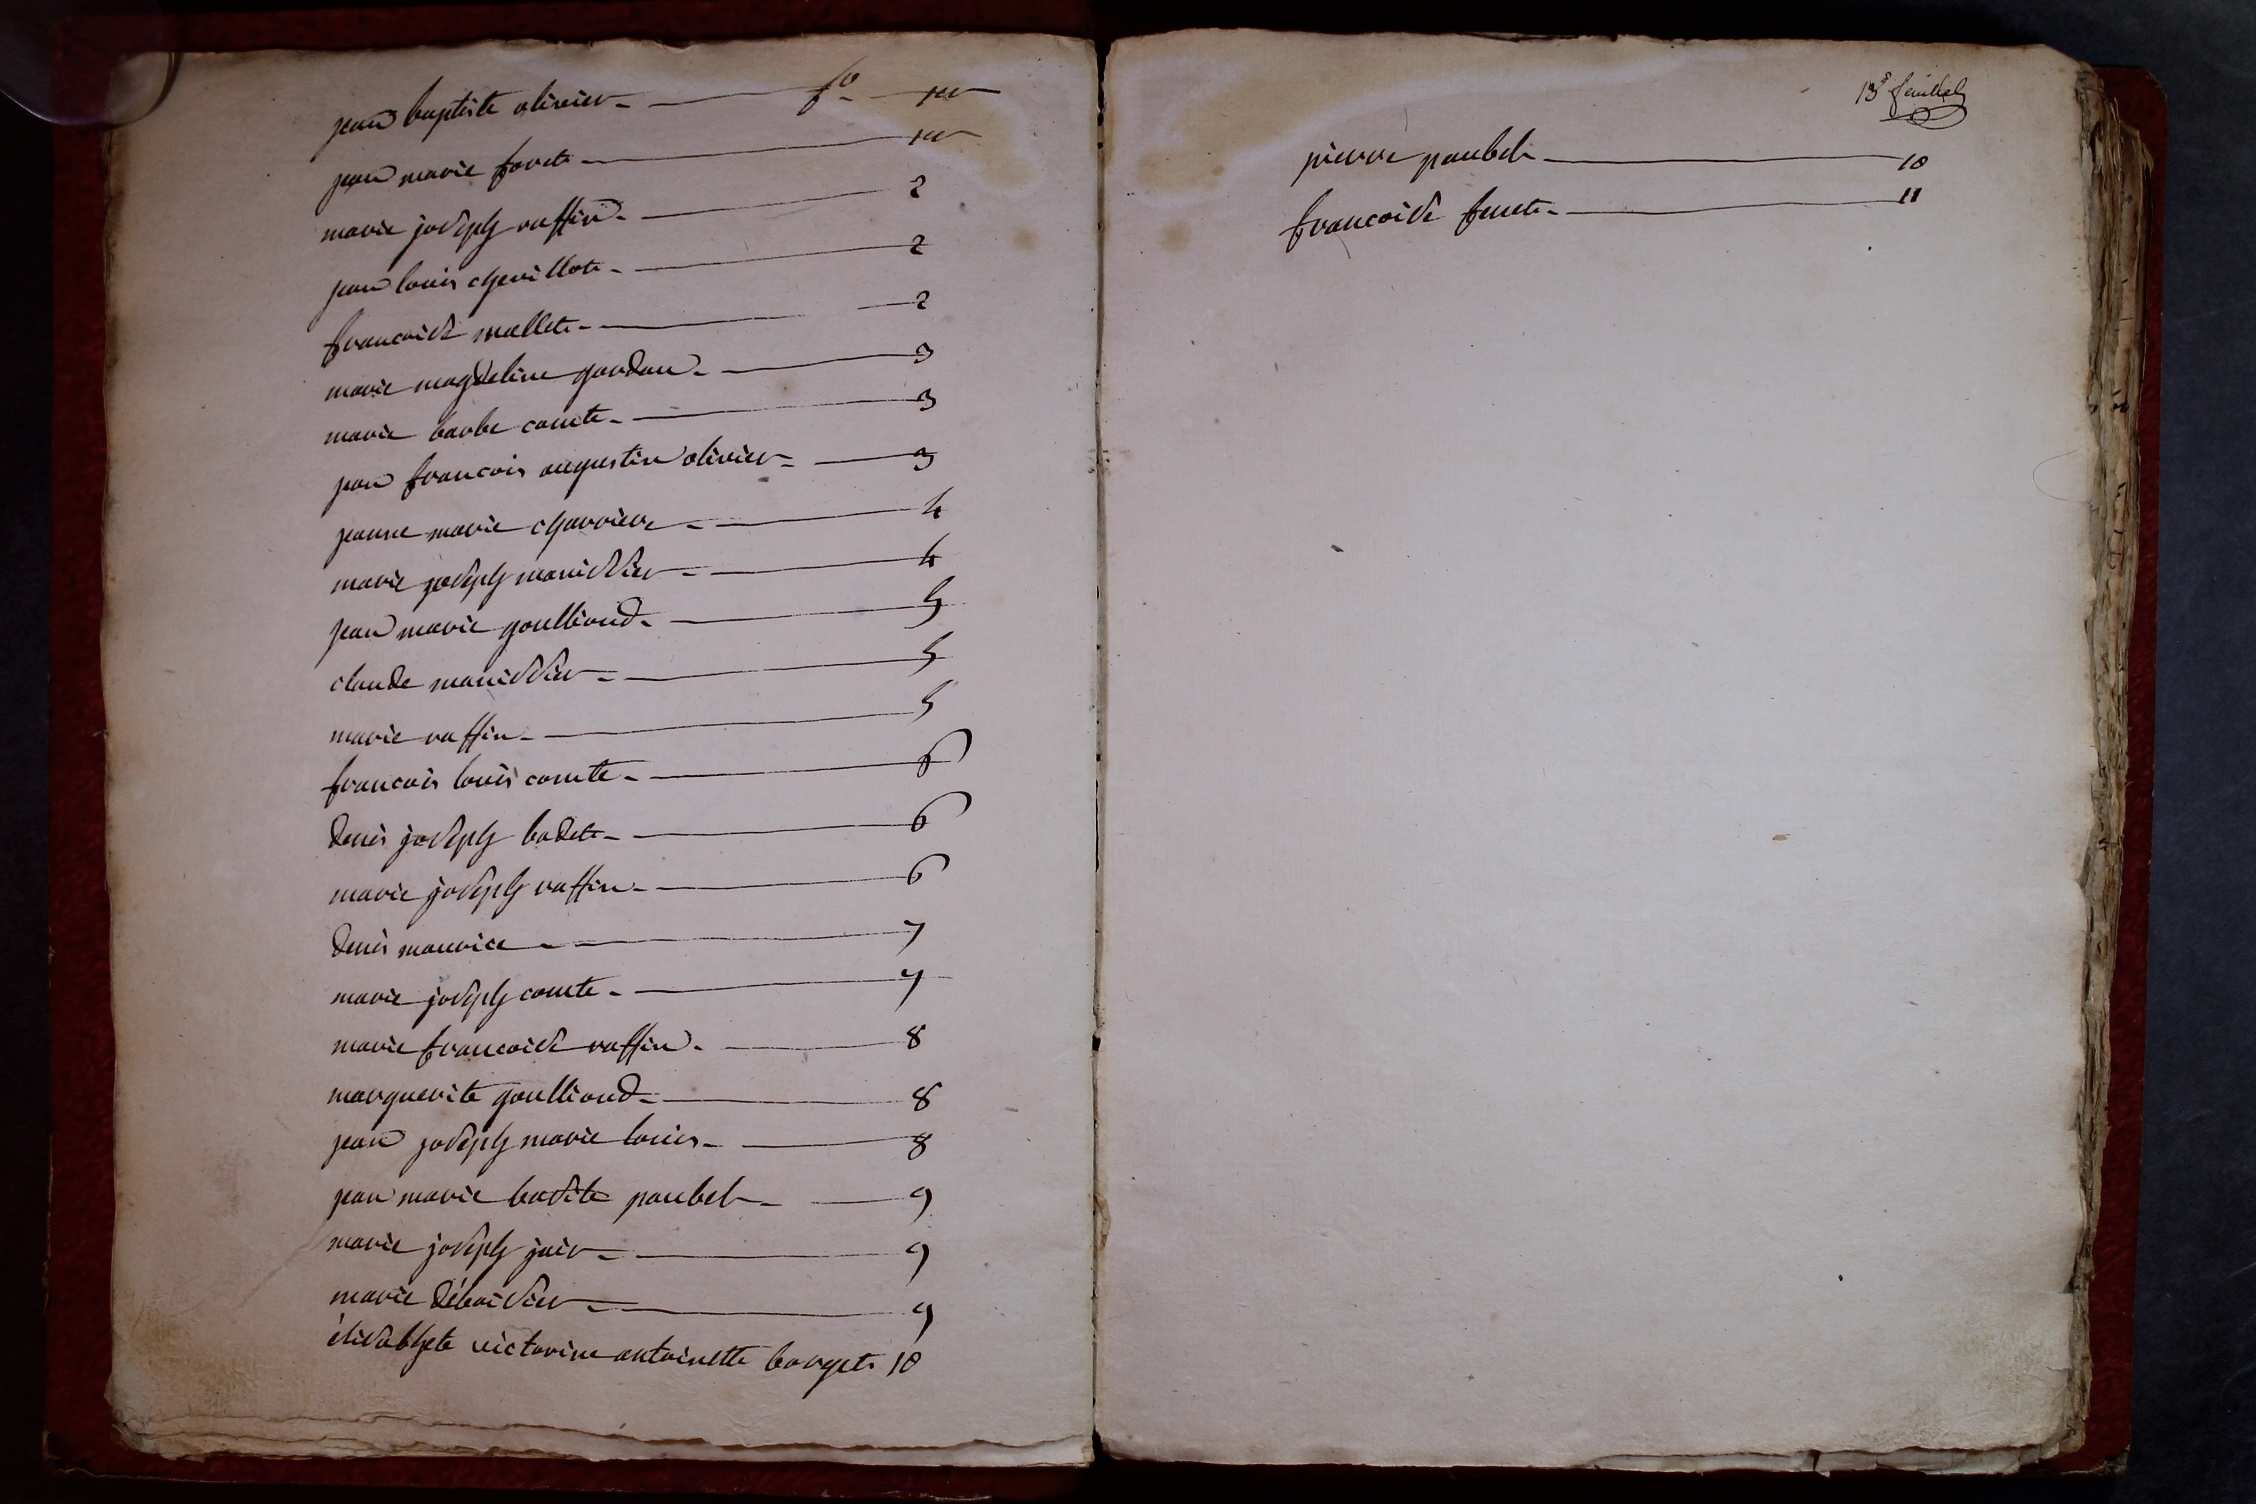 jean baptiste olivier - fo - 1er
jean marie foret - 1er
marie joseph ruffin - 2
jean louis chevillot - 2
francoise mallet - 2
marie magdeline gardan - 3
marie barbe comte - 3
jean francois augustin olivier - 3
jeanne marie charriere - 4
marie joseph manissier - 4
jean marie goulliond - 5
claude manissier - 5
marie ruffin - 5
francois louis comte - 6
denis joseph badet - 6
marie joseph ruffin - 6
denis maurice - 7
marie joseph comte - 7
marie francoise ruffin - 8
marguerite goulliond - 8
jean joseph marie louis - 8
jean marie batiste paubel - 9
marie joseph jair - 9
marie déboissier - 9
élisabhete victorine antoinette borget 10
13e feuillet
pierre paubel - 10
francoise - 11